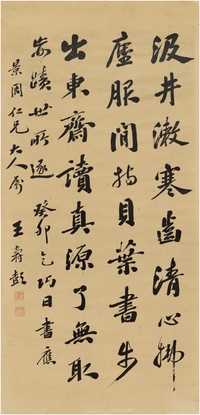 汲井漱寒齒清心拂
塵服閒持貝葉書步
出東齋讀真源了無取
妄蹟世所逐 癸卯乞巧日書應
景周仁兄大人属
王壽彭